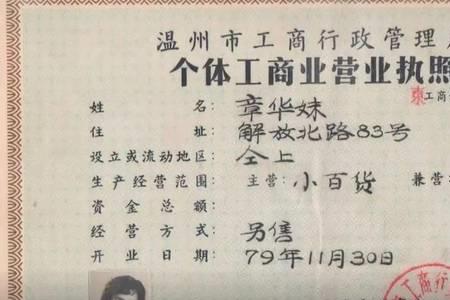 温州市工商行政管理
个体工商业营业执照
工商
姓名：章华妹
住址：解放北路83号
设立或流动地区：仝上
生产经营范围：主营：小百货 兼营
资金总额：
经营方式：另售
开业日期：79年11月30日
工商行